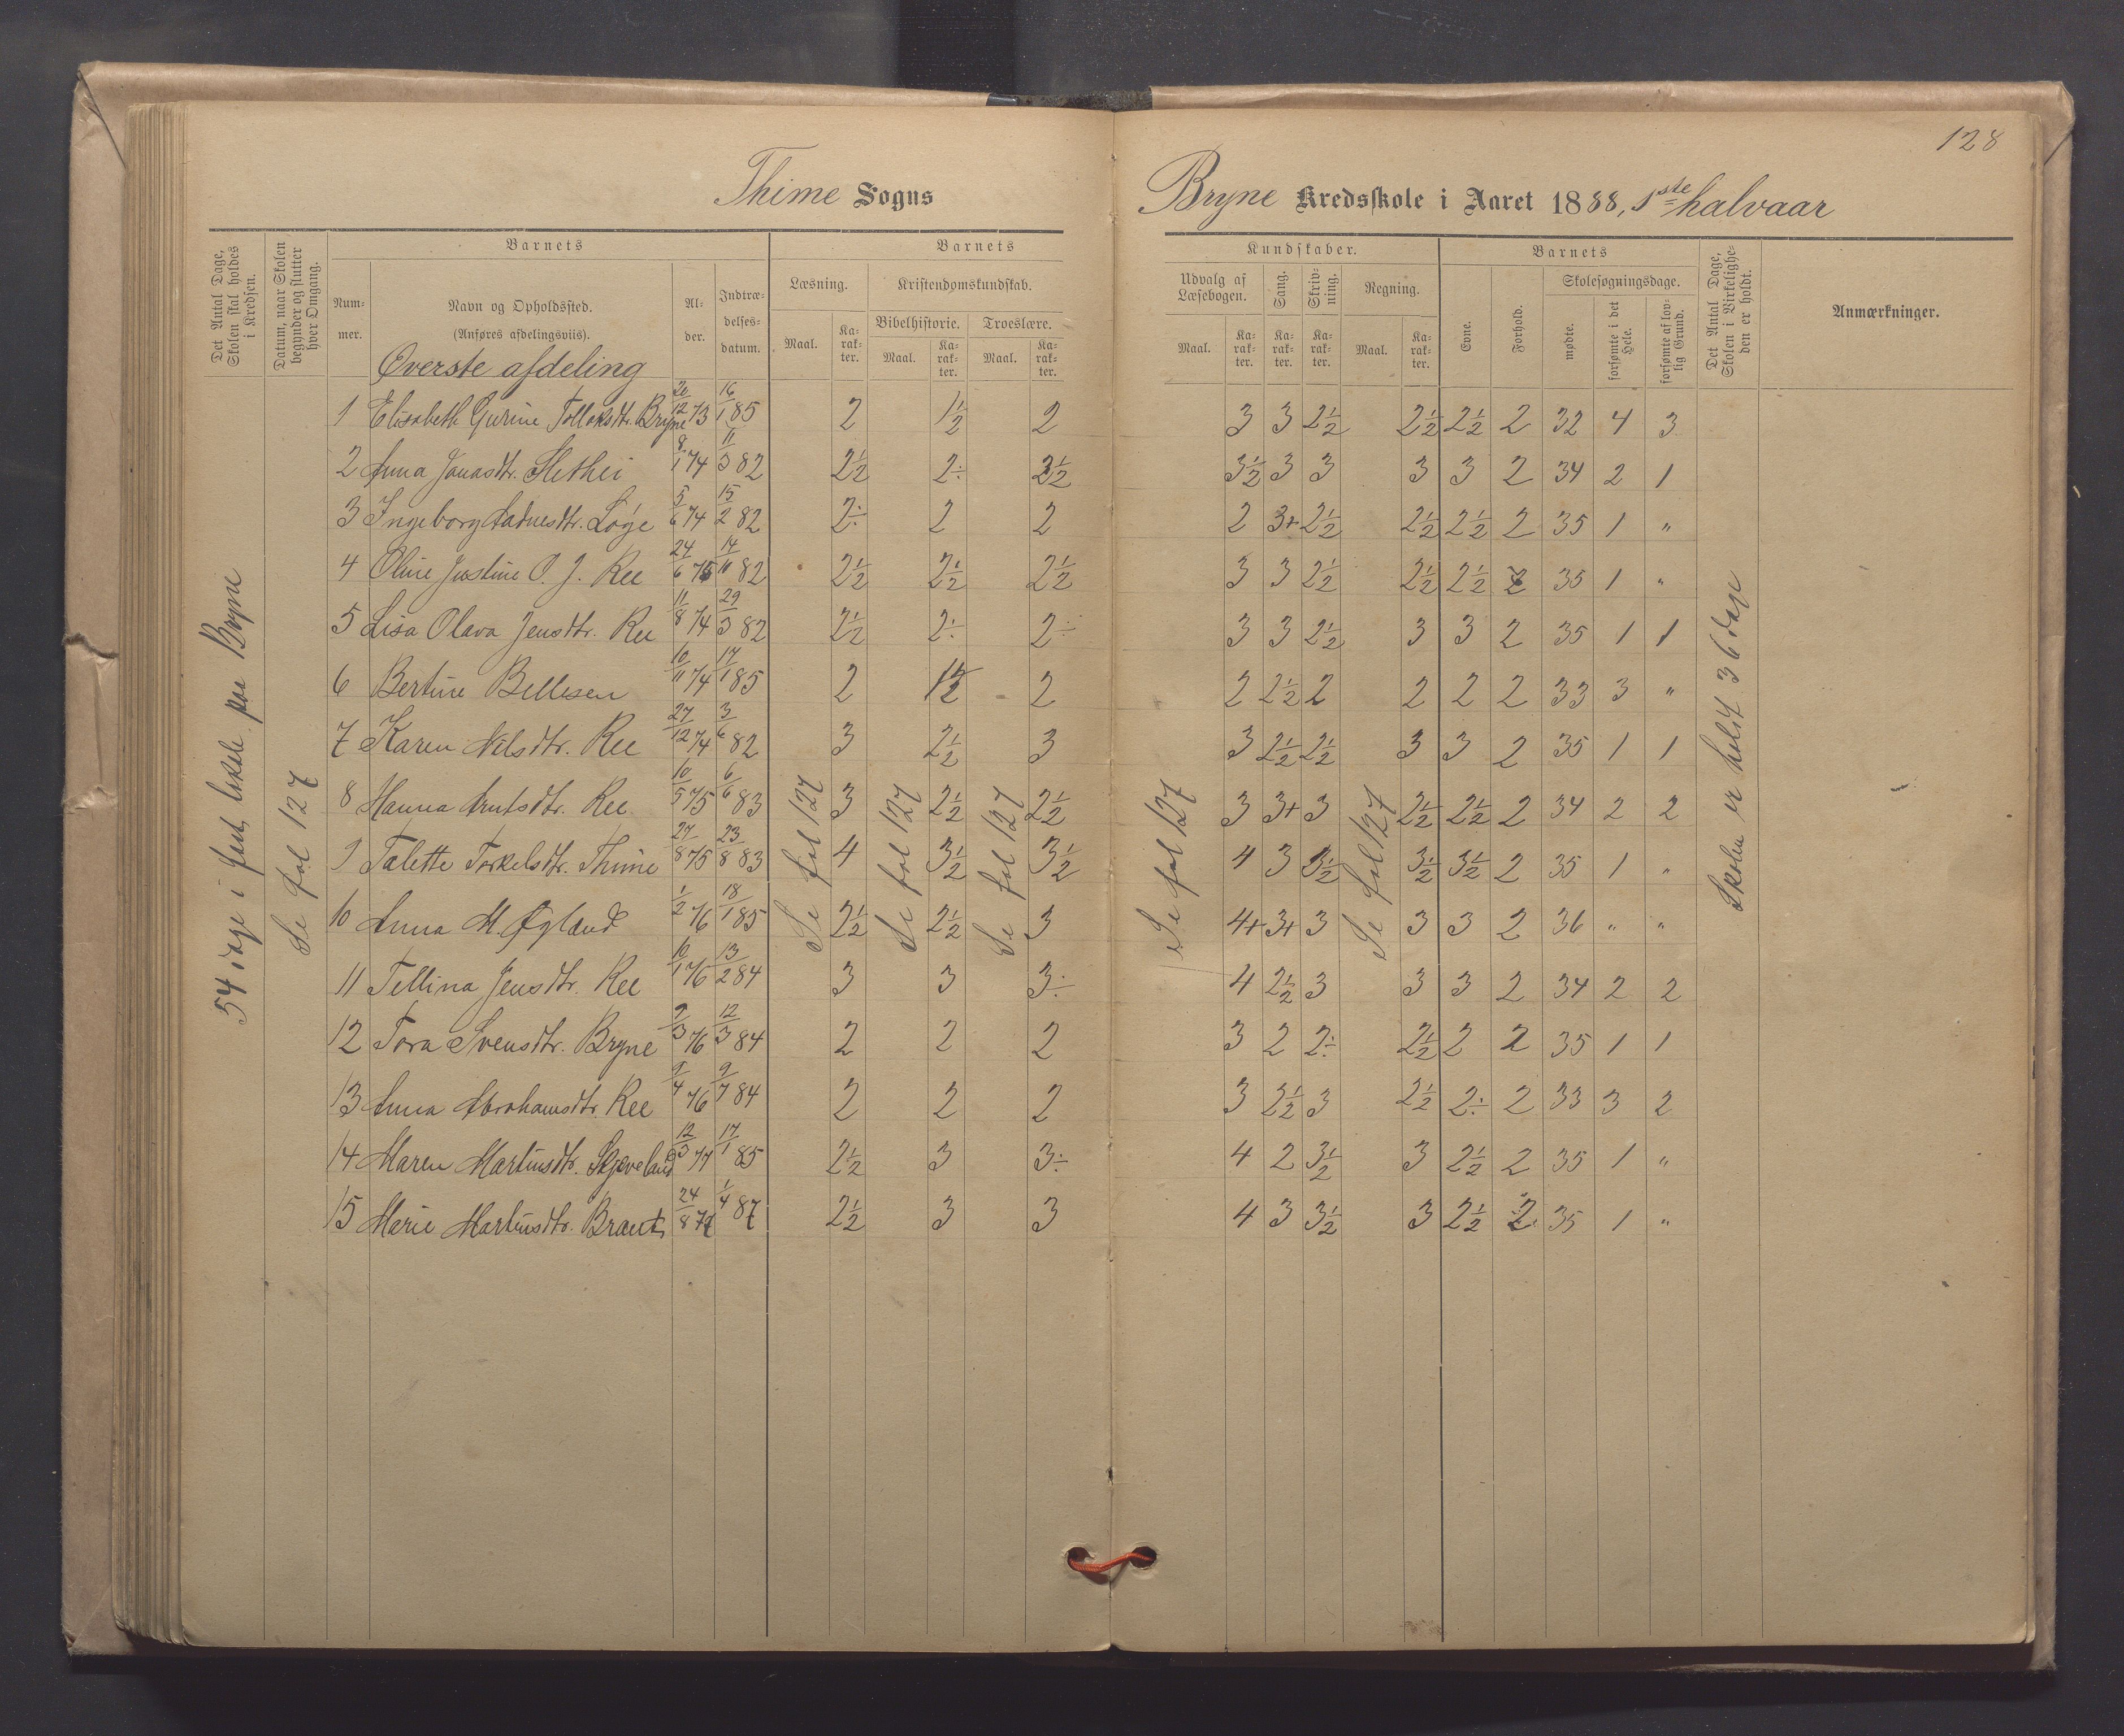 128
Thime Sogns
Bryne Kredsskole i Aaret 1888, 1ste halvaar
Det Antal Dage, Skolen skal holdes i Kredsen.
Datum, naar Skolen begynder og slutter hver Omgang.
Barnets
Barnets
Kundskaber.
Barnets
Det Antal Dage, Skolen i Virkeligheden er holdt.
Anmærkninger.
Nummer.
Navn og Opholdssted.
(Anføres afdelingsviis).
Alder.
Indtrædelsesdatum.
Læsning.
Kristendomskundskab.
Bibelhistorie.
Troeslære.
Udvalg af Læsebogen.
Sang.
Skrivning.
Regning.
Evne.
Forhold.
Skolesøgningsdage.
mødte.
forsømte i det Hele.
forsømte af lovlig Grund.
Maal. Karakter. Maal. Karakter. Maal. Karakter. Maal. Karakter. Karakter. Karakter. Maal. Karakter.
Øverste afdeling
54 dage i fast lokale paa Bryne
Se fol 127
Se fol 127
Se fol 127
Se fol 127
Se fol 127
Se fol 127
Skolen er holdt 36 dage
1 Elisabeth Gurine Tollaksdtr. Bryne 20/12 73 16/1 85 2 1½ 2 3 3 2½ 2½ 2½ 2 32 4 3
2 Anna Jonasdtr. Slethei 8/1 74 11/3 82 2½ 2÷ 2½ 3½ 3 3 3 3 2 34 2 1
3 Ingeborg Aadnesdtr. Løge 5/6 74 15/2 82 2÷ 2 2 2 3+ 2½ 2½ 2½ 2 35 1 "
4 Oline Justine O. J. Ree 24/6 75 14/11 82 2½ 2½ 2½ 3 3 2½ 2½ 2½ 2 35 1 "
5 Lisa Olava Jensdtr. Ree 11/8 74 29/3 82 2½ 2÷ 2÷ 3 3 2½ 3 3 2 35 1 1
6 Bertine Bellesen 10/11 74 17/1 85 2 1½ 2 2 2½ 2 2 2 2 33 3 "
7 Karen Nilsdtr. Ree 27/12 74 3/6 82 3 2½ 3 3 2½ 2½ 3 3 2 35 1 1
8 Hanna Arntsdtr. Ree 10/5 75 6/6 83 3 2½ 2½ 3 3+ 3 2½ 2½ 2 34 2 2
9 Talette Torkelsdtr. Thime 27/8 75 23/8 83 4 3½ 3½ 4 3 3½ 3½ 3½ 2 35 1 "
10 Anna M. Øgland 1/2 76 18/1 85 2½ 2½ 3 4+ 3+ 3 3 3 2 36 " "
11 Tellina Jensdtr. Ree 10/1 76 13/2 84 3 3 3÷ 4 2½ 3 3 3 2 34 2 2
12 Tora Svensdtr. Bryne 9/3 76 12/3 84 2 2 2 3 2 2÷ 2½ 2 2 35 1 1
13 Anna Abrahamsdtr. Ree 9/4 76 9/7 84 2 2 2 3 2½ 3 2½ 2÷ 2 33 3 2
14 Maren Martinsdtr. Skjæveland 12/3 77 17/1 85 2½ 3 3÷ 4 2 3½ 3 2½ 2 35 1 "
15 Marie Martinsdtr. Braut 24/8 77 1/4 87 2½ 3 3 4 3 3½ 3 2½ 2 35 1 "